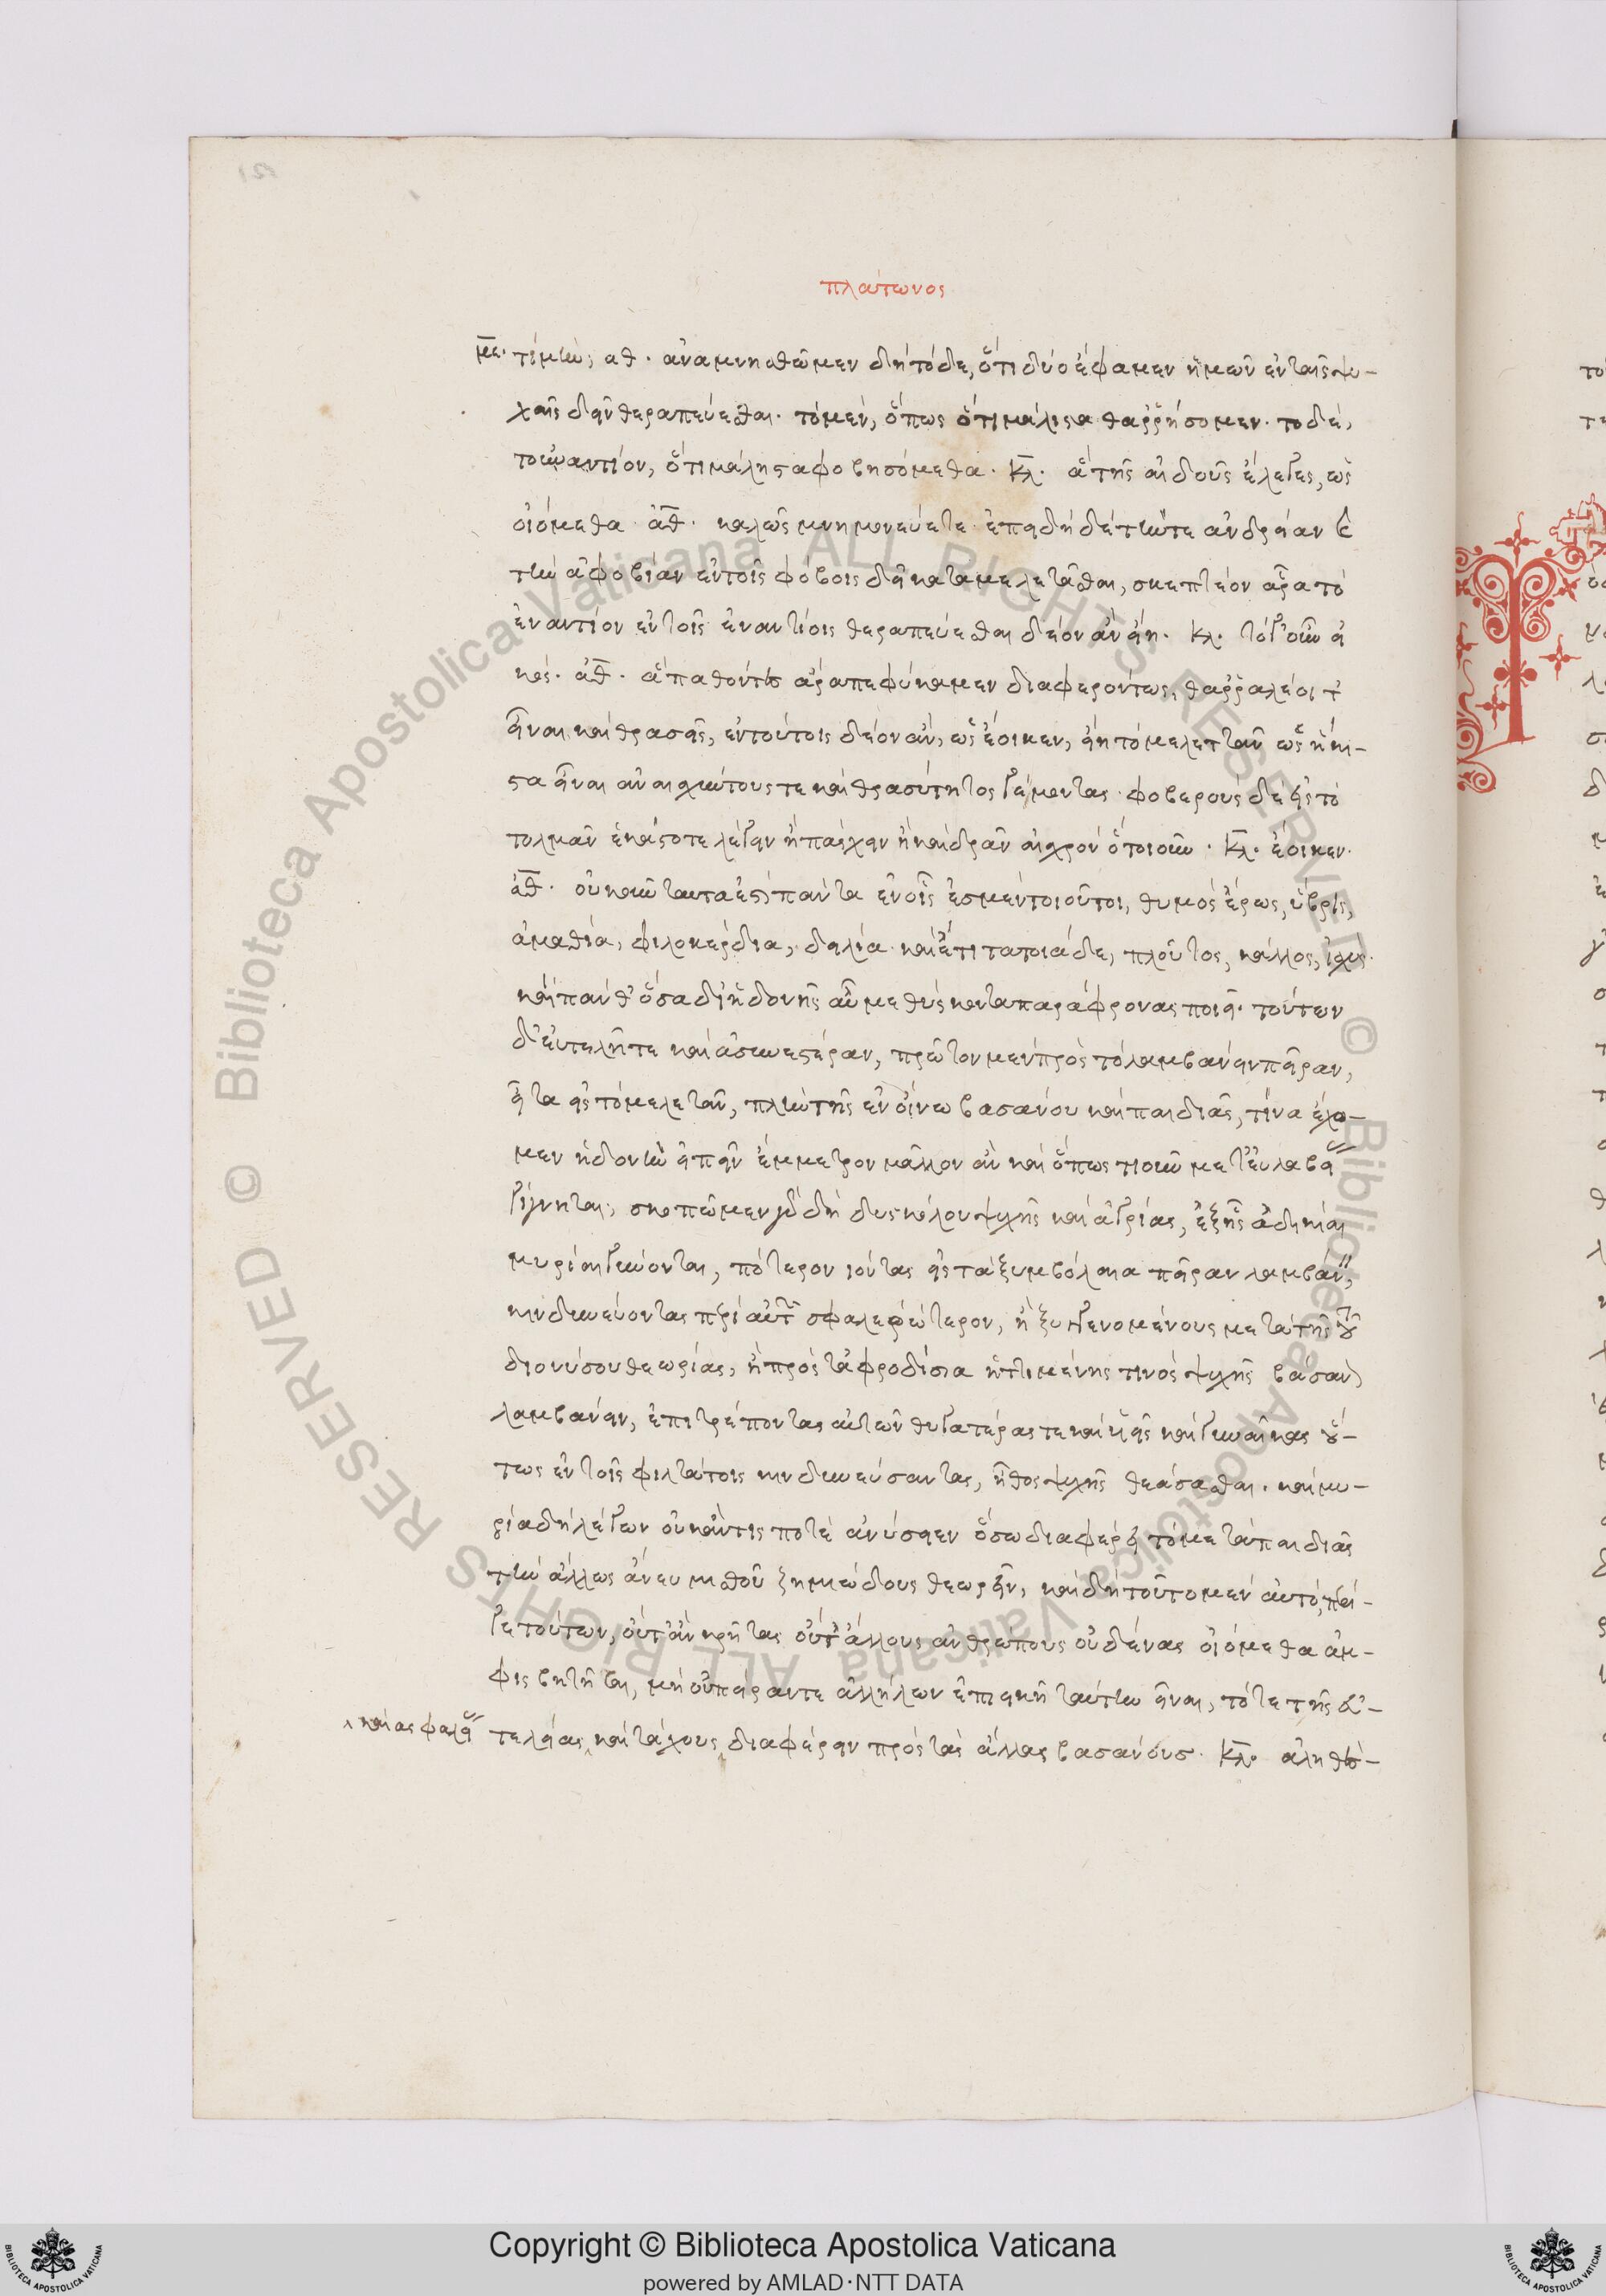 πλάτωνος
με. τίμιὼ; αθ. ἀναμνησθῶμεν δὴ τόδε, ὅτι δύο ἔφαμεν ἡμῶν ἐν ταῖς ψυ-
χαῖς δεῖν θεραπεύεσθαι. τὸ μὲν, ὅπως ὅτι μάλιστα θαῤῥήσομεν. τὸ δὲ,
τοὐναντίον, ὅτι μάληστα φοβησόμεθα. κλ. ἃ τῆς αἰδοῦς ἔλεγες, ὡς
οἰόμεθα. ἀθ. καλῶς μνημονεύετε. ἐπειδὴ δὲ τήν τε ἀνδρείαν καὶ
τὴν ἀφοβίαν ἐν τοῖς φόβοις δεῖ καταμελετᾶσθαι, σκεπτέον ἆρα τὸ
ἐναντίον ἐν τοῖς ἐναντίοις θεραπεύεσθαι δέον ἂν εἴη. κλ. τό γ' οὖν εἰ
κός. ἀθ. ἃ παθόντες ἄρα πεφύκαμεν διαφερόντως, θαῤῥαλέοι τ'
εἶναι καὶ θρασεῖς, ἐν τούτοις δέον ἂν, ὡς ἔοικεν, εἴη τὸ μελετταν ὡς ἥκι-
στα εἶναι ἀναισχύντους τε καὶ θρασύτητος γέμοντας. φοβεροὺς δὲ εἰς τὸ
τολμᾶν ἑκάστοτε λέγειν ἢ πάσχειν ἢ καὶ δρᾶν αἰσχρὸν ὁτιοῦν. κλ. ἔοικεν.
ἀθ. οὐκοῦν ταῦτα ἐστὶ πάντα ἐν οἷς ἐσμὲν τοιοῦτοι, θυμὸς ἔρως, ὕβρις,
ἀμαθία, φιλοκέρδια, δειλία. καὶ ἔτι τα τοιάδε, πλοῦτος, κάλλος, ἰσχὺς.
καὶ πάνθ' ὅσα δι' ἡδονῆς αὖ μεθύσκοντα παράφρονας ποιεῖ. τούτων
δ' εὐτελῆ τε καὶ ἀσινεστέραν, πρῶτον μὲν πρὸς τὸ λαμβάνειν πεῖραν,
εἶτα εἰς τὸ μελετᾶν, πλὴν τῆς ἐν οἴνω βασάνου καὶ παιδιᾶς, τίνα ἔχο-
μεν ἡδονὴν εἰπεῖν ἔμμετρον μᾶλλον ἂν καὶ ὅπως τιοῦν μετ' εὐλαβείας
γίγνηται; σκοπῶμεν γὰρ δὴ δυσκόλου ψυχῆς καὶ ἀγρίας, ἐξ ἧς ἀδικίαι
μυρίαι γίγνονται, πότερον ἰόντας εἰς τὰ ξυμβόλαια πεῖραν λαμβάνειν,
κινδυνεύοντας περὶ αὐτῶν σφαλερώτερον, ἢ ξυγγενομένους μετὰ τῆς τοῦ
διονύσου θεωρίας, ἢ πρὸς τἀφροδίσια ἡττημένης τινὸς ψυχῆς βάσανον
λαμβάνειν, ἐπιτρέποντας αὐτῶν θυγατέρας τε καὶ υἱεῖς καὶ γυναῖκας οὕ-
τως ἐν τοῖς φιλτάτοις κινδυνεύσαντας, ἦθος ψυχῆς θεάσασθαι. καὶ μυ-
ρία δὴ λέγων οὐκ ἄν τις ποτὲ ἀνύσειεν ὅσω διαφέρει τὸ μετὰ παιδιᾶς
τὴν ἄλλως ἄνευ μισθοῦ ζημιώδους θεωρεῖν, καὶ δὴ τοῦτο μὲν αὐτὸ περί
γε τούτων, οὔτ' ἂν κρῆτας οὔτ' ἄλλους ἀνθρώπους οὐδένας οἰόμεθα ἀμ-
φισβητῆσαι, μὴ οὐ πεῖράν τε ἀλλήλων ἐπιεικῆ ταύτην εἶναι, τό τε τῆς εὐ-
καὶ ἀσφαλείας
τελείας καὶ τάχους διαφέρειν πρὸς τὰς ἄλλας βασάνους. κλ. ἀληθὲς